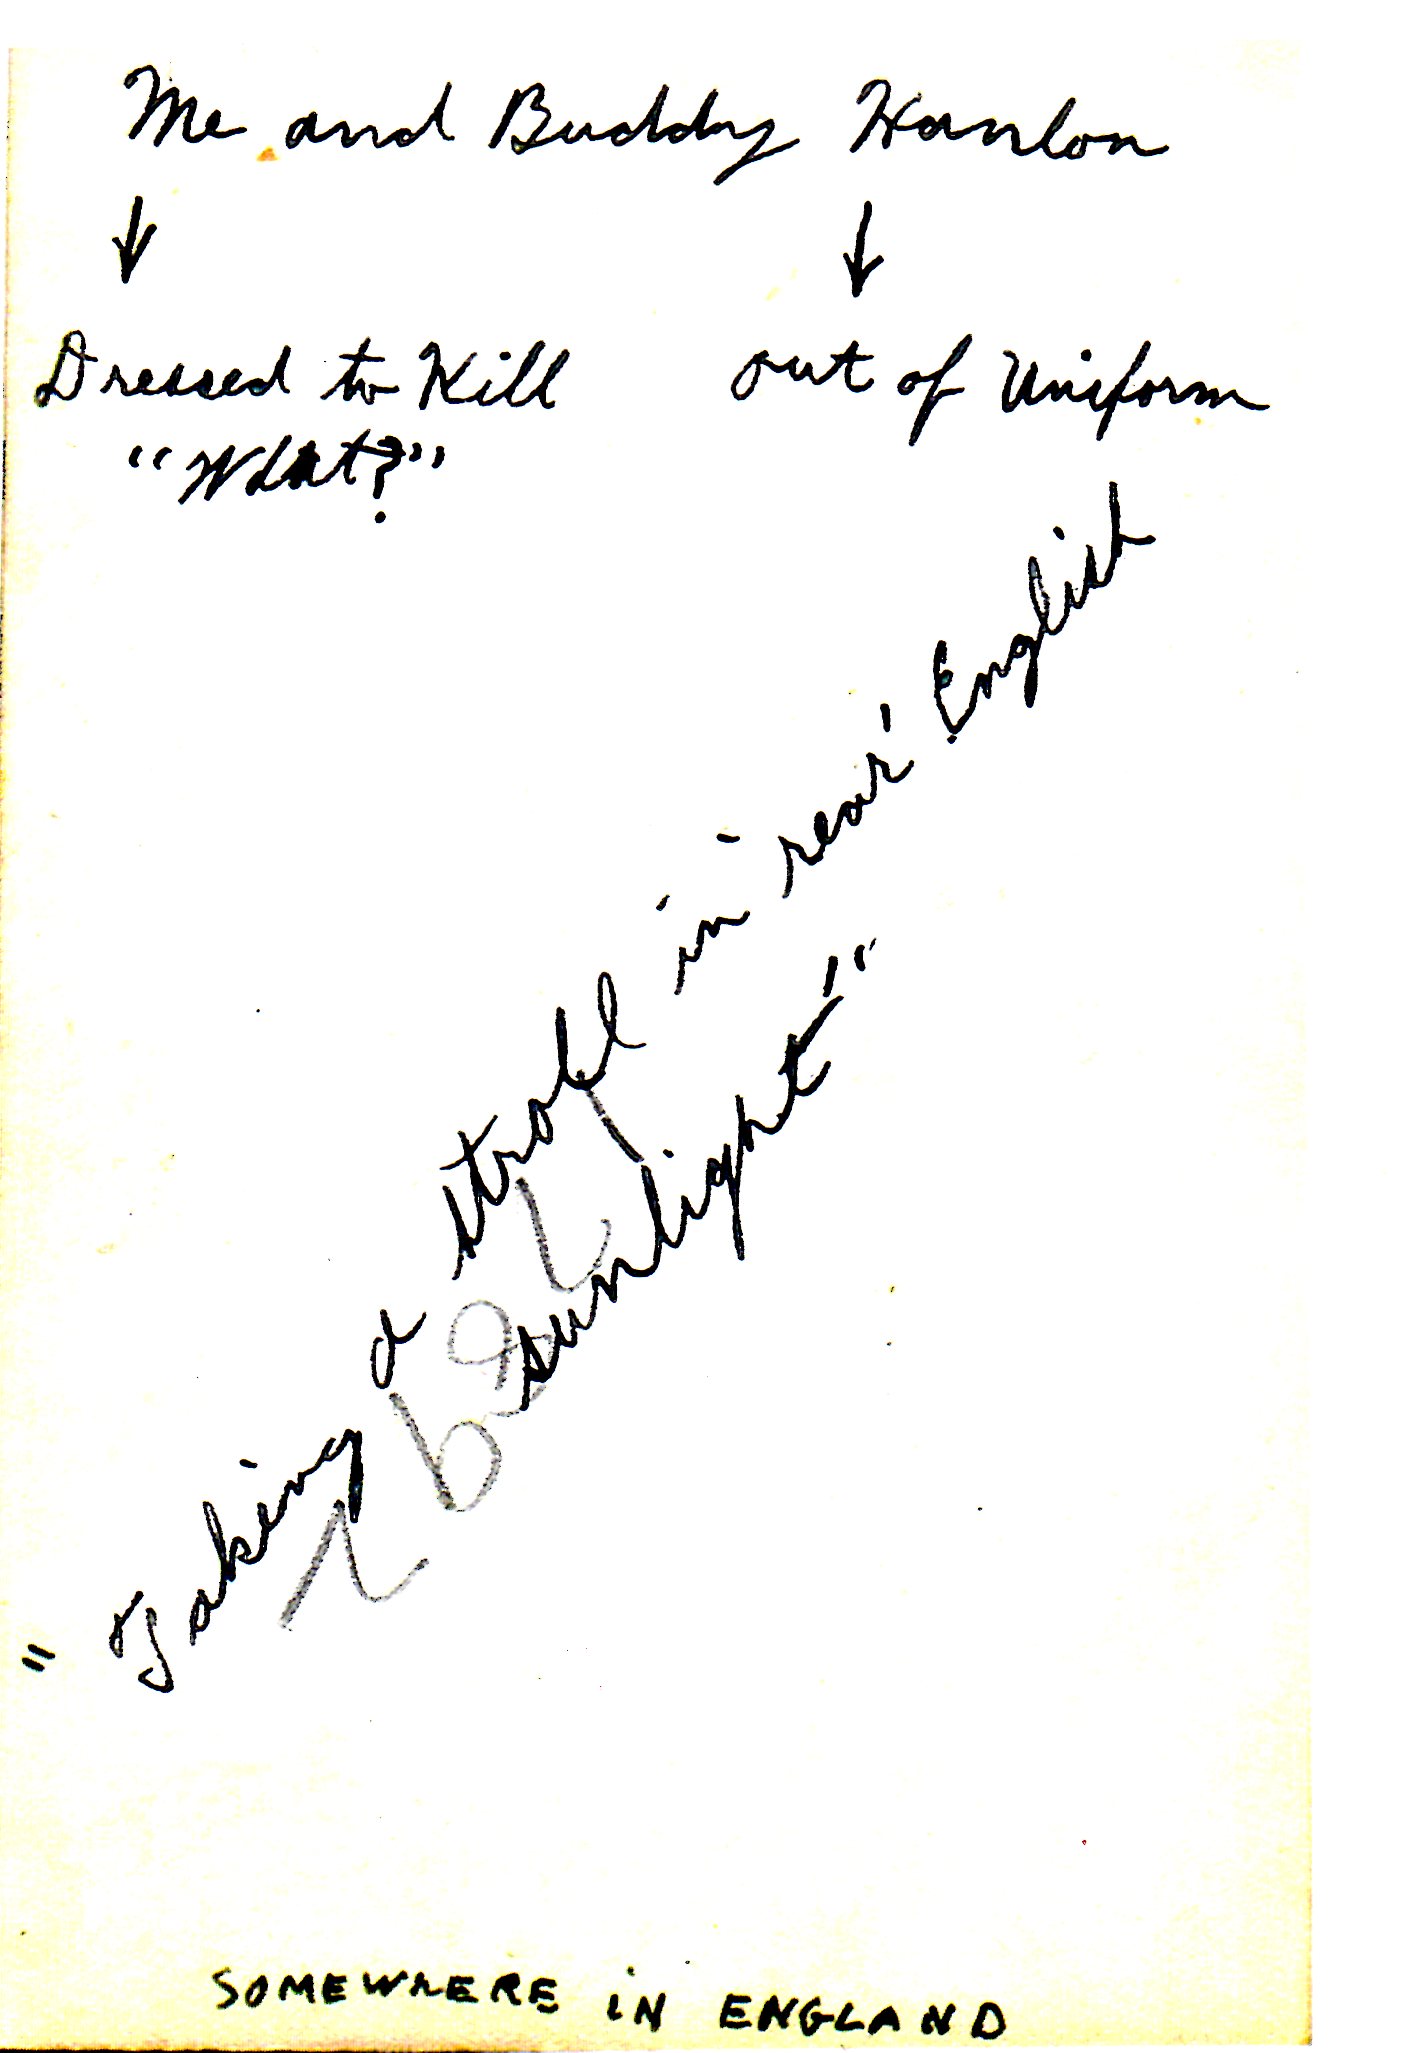 Me and Buddy Hanlon
↓ ↓
Dressed to Kill out of Uniform
"What?"
"Taking a stroll in 'rear' English
sunlight"
SOMEWHERE iN ENGLAND